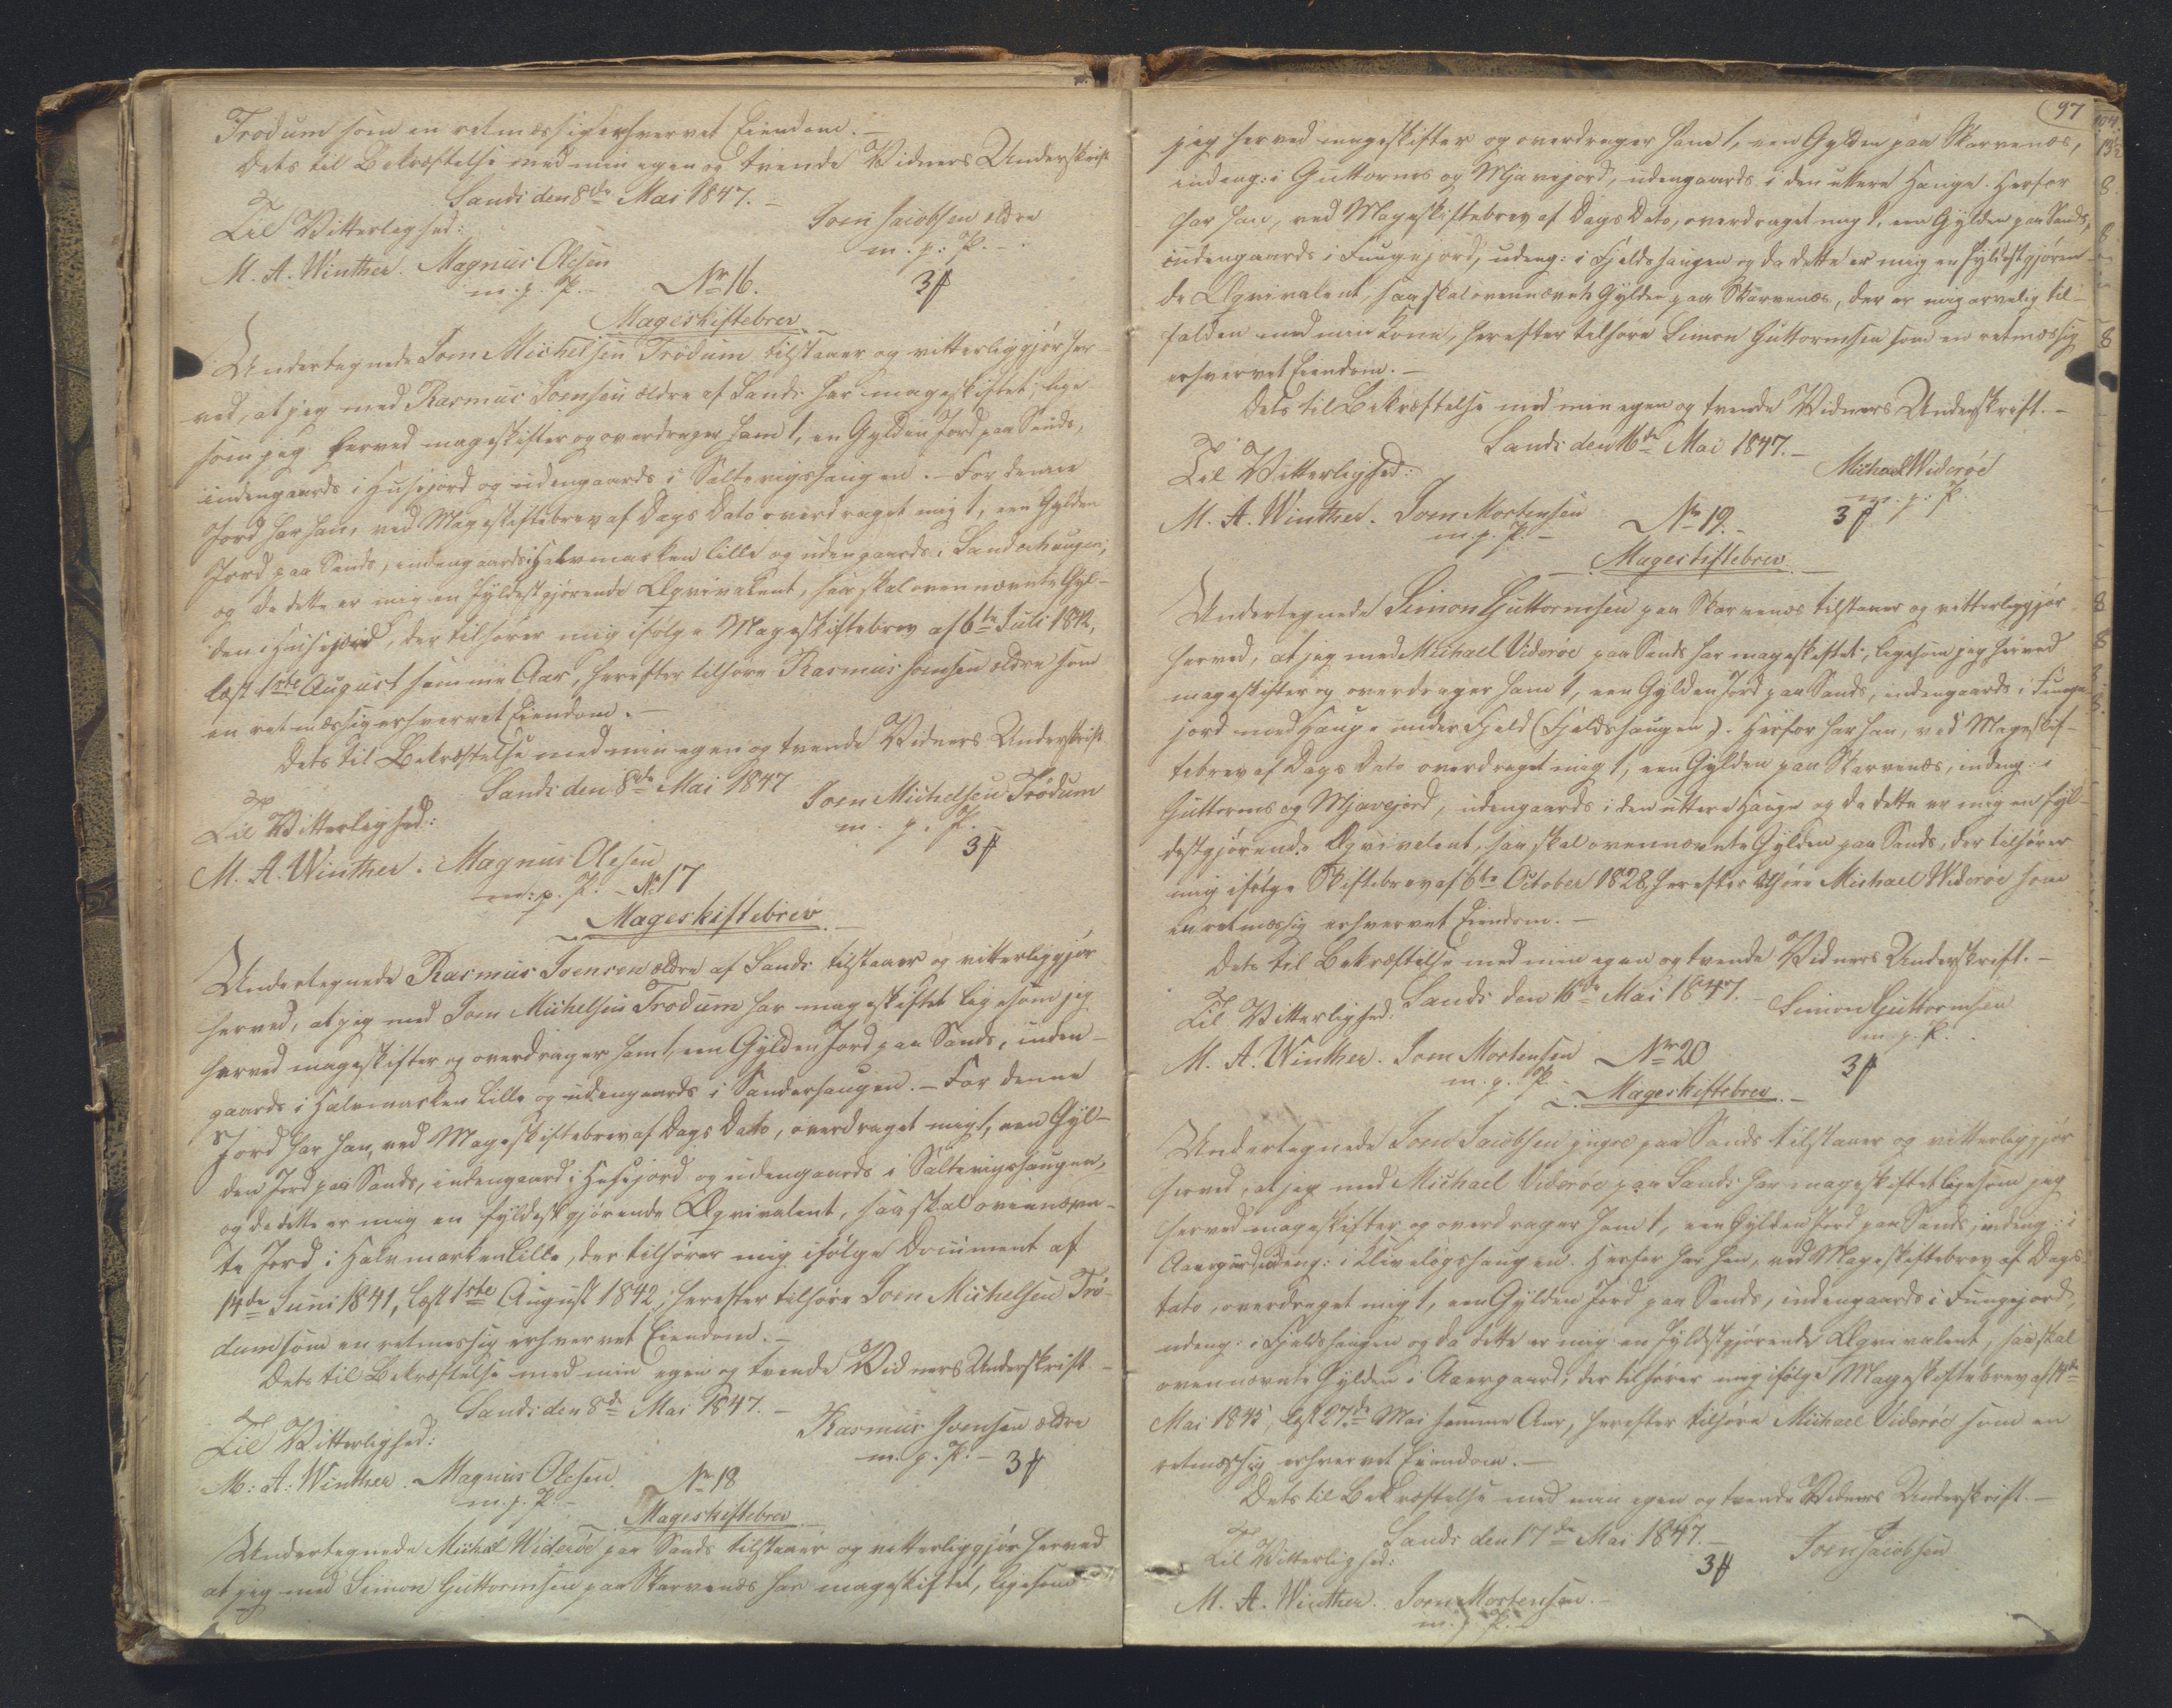 Trødum som en retmæssig erhvervet Eiendom.—
Dets til Bekræftelse med min egen og tvende Vidners Underskrift
Sands den 8de Mai 1847.—
Til Vitterlighed:
Joen Jacobsen ældre
m. p. P.—
M. A. Winther. Magnus Olesen
m. p. P.—
No 16.
3 ß
Mageskiftebrev.
Undertegnede Joen Michelsen Trødum tilstaaer og vitterliggjør her-
ved, at jeg med Rasmus Joensen ældre af Sands har mageskiftet, lige-
som jeg herved mageskifter og overdrager ham 1, en Gylden Jord paa Sands,
indengaards i Husejord og udengaards i Saltevigshaugen.— For denne
Jord har han, ved Mageskiftebrev af Dags Dato overdraget mig 1, een Gylden
Jord paa Sands, indengaards i Halvmarken lille og udengaards i Sandershaugen;
og da dette er mig en fyldestgjørende Æqvivalent, saa skal ovennævnte Gyl-
den i Husejord, der tilhører mig ifølge Mageskiftebrev af 6te Juli 1842,
læst 1ste August samme Aar, herefter tilhøre Rasmus Joensen ældre som
en retmæssig erhvervet Eiendom.—
Dets til Bekræftelse med min egen og tvende Vidners Underskrift
Sands den 8de Mai 1847
Til Vitterlighed:
Joen Michelsen Trødum
m. p. P.
M. A. Winther. Magnus Olesen
m. p. P.—
3 ß
No 17
Mageskiftebrev.—
Undertegnede Rasmus Joensen ældre af Sands tilstaaer og vitterliggjør
herved, at jeg med Joen Michelsen Trødum har mageskiftet ligesom jeg
herved mageskifter og overdrager ham 1, een Gylden Jord paa Sands, inden-
gaards i Halvmarken lille og udengaards i Sandershaugen.— For denne
Jord har han, ved Mageskiftebrev af Dags Dato, overdraget mig 1, een Gyl-
den Jord paa Sands, indengaards i Husejord og udengaards i Saltevigshaugen,
og da dette er mig en fyldestgjørende Æqvivalent, saa skal ovennævn-
te Jord i Halvmarken lille, der tilhører mig ifølge Document af
14de Juni 1841, læst 1ste August 1842, herefter tilhøre Joen Michelsen Trø-
dum som en retmæssig erhvervet Eiendom.—
Dets til Bekræftelse med min egen og tvende Vidners Underskrift.—
Sands den 8de Mai 1847.—
Til Vitterlighed:
Rasmus Joensen ældre
m. p. P.—
M. A. Winther. Magnus Olesen.
m. p. P.—
No 18
3 ß
Mageskiftebrev.—
Undertegnede Michael Widerøe paa Sands tilstaaer og vitterliggjør herved
at jeg med Simon Guttormsen paa Skarvenæs har mageskiftet, ligesom
97
jeg herved mageskifter og overdrager ham 1, een Gylden paa Skarvenæs,
indeng: i Guttorms og Mjavejord, udengaards i den uttere Hauge. Herfor
har han, ved Mageskiftebrev af Dags Dato, overdraget mig 1, een Gylden paa Sands,
indengaards i Fungejord, udeng: i Fjeldshaugen og da dette er mig en fyldestgjøren-
de Æqvivalent, saa skal ovennævnte Gylden paa Skarvenæs, der er mig arvelig til-
falden med min Kone, herefter tilhøre Simon Guttormsen som en retmæssig
erhvervet Eiendom.—
Dets til Bekræftelse med min egen og tvende Vidners Underskrift.—
Sands den 16de Mai 1847.—
Til Vitterlighed:
Michael Widerøe
m. p. P.
M. A. Winther. Joen Mortensen
m. p. P.—
No 19.—
3 ß
Mageskiftebrev.—
Undertegnede Simon Guttormsen paa Skarvenæs tilstaaer og vitterliggjør
herved, at jeg med Michael Viderøe paa Sands har mageskiftet, ligesom jeg herved
mageskifter og overdrager ham 1, een Gylden Jord paa Sands, indengaards i Funge-
jord med Hauge under Fjeld (Fjeldshaugen). Herfor har han, ved Mageskif-
tebrev af Dags Dato overdraget mig 1, een Gylden paa Skarvenæs, indeng: i
Guttorms og Mjavejord, udengaards i den uttere Hauge og da dette er mig en fyl-
destgjørende Æqvivalent, saa skal ovennævnte Gylden paa Sands, der tilhører
mig ifølge Skiftebrev af 6te October 1828, herefter tilhøre Michael Widerøe som
en retmæssig erhvervet Eiendom.—
Dets til Bekræftelse med min egen og tvende Vidners Underskrift.—
Sands den 16de Mai 1847.—
Til Vitterlighed:
Simon Guttormsen
m. p. P.
M. A. Winther. Joen Mortensen
m. p. P.—
No 20
3 ß
Mageskiftebrev.—
Undertegnede Joen Jacobsen yngre paa Sands tilstaaer og vitterliggjør
herved, at jeg med Michael Viderøe paa Sands har mageskiftet ligesom jeg
herved mageskifter og overdrager ham 1, een Gylden Jord paa Sands, indeng: i
Aaergaard, udeng: i Klivaløgshaugen. Herfor har han, ved Mageskiftebrev af Dags
Dato, overdraget mig 1, een Gylden Jord paa Sands, indengaards i Fungejord,
udeng: i Fjeldshaugen og da dette er mig en fyldestgjørende Æqvivalent, saa skal
ovennævnte Gylden i Aaergaard, der tilhører mig ifølge Mageskiftebrev af 14de
Mai 1845, læst 27de Mai samme Aar, herefter tilhøre Michael Viderøe som en
retmæssig erhvervet Eiendom.—
Dets til Bekræftelse med min egen og tvende Vidners Underskrift.—
Sands den 17de Mai 1847.—
Til Vitterlighed:
3 ß
Joen Jacobsen
M. A. Winther. Joen Mortensen.—
m. p. P.—